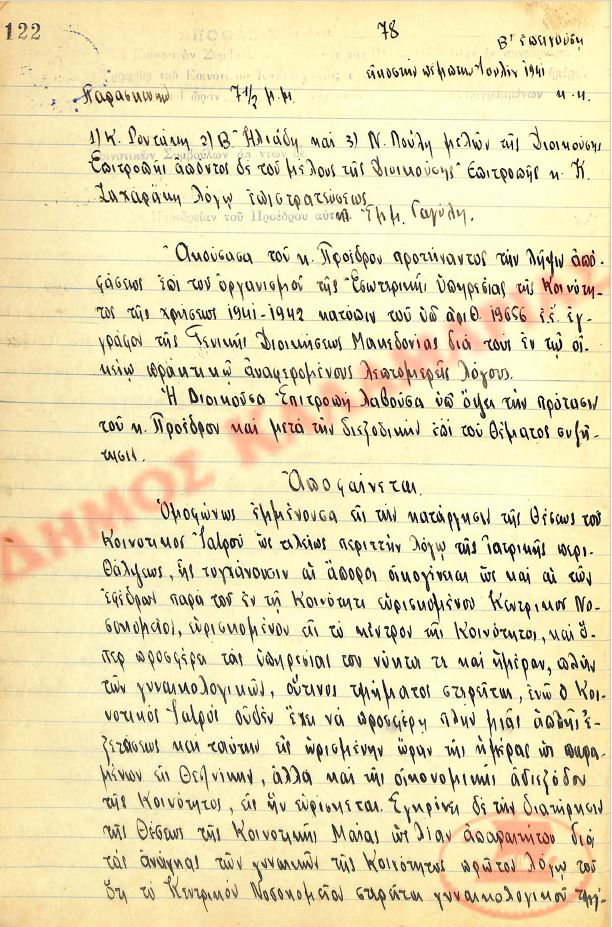 122
78
Β' επειγούση
εικοστήν πέμπτην Ιουλίου 1941
Παρασκευήν 7 1/2 μ.μ. κ.κ.
1) Κ. Ροντάκη 2) Β. Ηλιάδη και 3) Ν. Πούλη μελών της Διοικούσης
Επιτροπής απόντος δε του μέλους της Διοικούσης Επιτροπής κ. Κ.
Ζαχαράκη λόγω επιστρατεύσεως
Εμμ. Γαγύλη.
Ακούσασα του κ. Προέδρου προτείναντος την λήψιν αποφ-
άσεως επί του οργανισμού της Εσωτερικής υπηρεσίας της Κοινότη-
τος της χρήσεως 1941-1942 κατόπιν του υπ' αριθ. 19656 ε.έ. εγ-
γράφου της Γενικής Διοικήσεως Μακεδονίας διά τους εν τω οι-
κείω πρακτικώ αναφερομένους λεπτομερείς λόγους.
Η Διοικούσα Επιτροπή λαβούσα υπ' όψει την πρότασιν
του κ. Προέδρου και μετά την διεξοδικήν επί του θέματος συζή-
τησιν.
Αποφαίνεται
Ομοφώνως εμμένουσα εις την κατάργησιν της θέσεως του
Κοινοτικού Ιατρού ως τελείως περιττήν λόγω της ιατρικής περι-
θάλψεως, ης τυγχάνουσιν αι άποροι οικογένειαι ως και αι των
εφέδρων παρά του εν τη Κοινότητι ευρισκομένου Κεντρικού Νο-
σοκομείου, ευρισκομένου εις το κέντρον της Κοινότητος, και ό-
περ προσφέρει τας υπηρεσίας του νύκτα τε και ημέραν, πλην
των γυναικολογικών, ούτινος τμήματος στερείται, ενώ ο Κοι-
νοτικός Ιατρός ουδέν έχει να προσφέρη πλην μιας απλής ε-
ξετάσεως και ταύτην εις ωρισμένην ώραν της ημέρας ως παρα-
μένων εις Θεσ/νίκην, αλλά και της οικονομικής αδιεξόδου
της Κοινότητος, εις ην ευρίσκεται. Εγκρίνει δε την διατήρησιν
της θέσεως της Κοινοτικής Μαίας ως λίαν απαραιτήτου διά
τας ανάγκας των γυναικών της Κοινότητος πρώτον λόγω του
ότι το Κεντρικόν Νοσοκομείον στερείται γυναικολογικού τμή-
ΔΗΜΟΣ ΚΑΛΑΜΑΡΙΑΣ